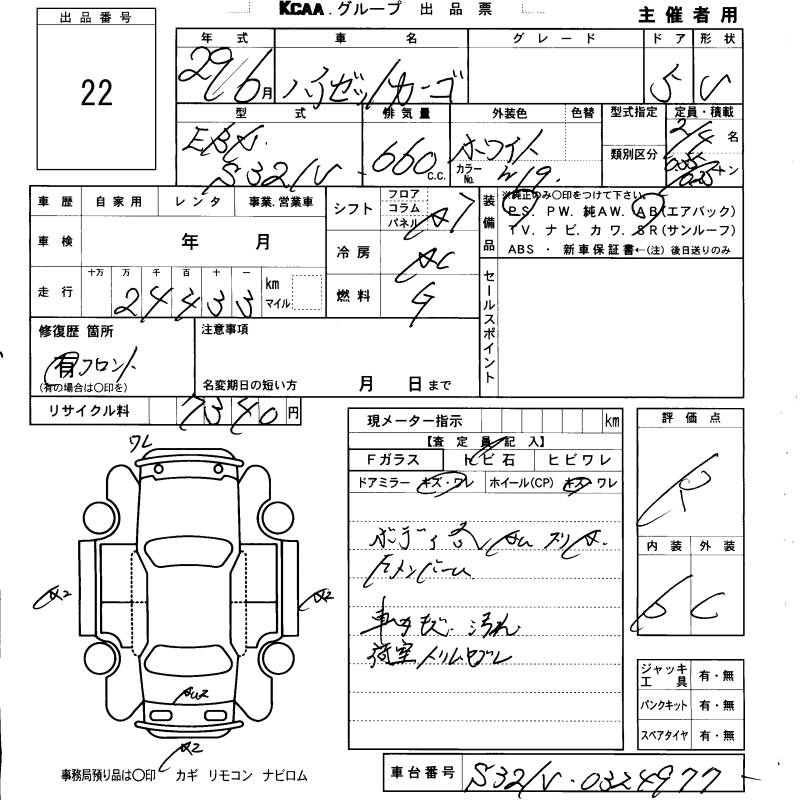 KCAA.グループ 出品票
主催者用
出品番号
22
年式 車名 グレード ドア 形状
29/6月 ハイゼットカーゴ 5 V
型式 排気量 外装色 色替 型式指定 定員・積載
類別区分
EBD
S321V 660 C.C. ホワイト カラーNo. W19. 2/4名 0.35/0.25トン
車歴 自家用 レンタ 事業.営業車
車検 年 月
走行 十万 万 千 百 十 一
24433 km マイル
シフト フロア コラム パネル AT
冷房 AC
燃料 G
装備品 ※純正のみ○印をつけて下さい。
P.S. P.W. 純A.W. A.B(エアバック)
T.V. ナビ. カワ. S.R(サンルーフ)
ABS ・ 新車保証書←(注) 後日送りのみ
セールスポイント
修復歴 箇所
有 フロント
(有の場合は○印を)
注意事項
名変期日の短い方 月 日まで
リサイクル料 7340円
現メーター指示 km
【査定員記入】
Fガラス トビ石 ヒビワレ
ドアミラー キズ・ワレ ホイール(CP) キズ・ワレ
Fメンバー
車内キズ 汚れ
荷室
評価点
R
内装 外装
C
ワレ
A2
A2
A2
ジャッキ 工具 有・無
パンクキット 有・無
スペアタイヤ 有・無
事務局預り品は○印 カギ リモコン ナビロム
車台番号 S321V-0324977